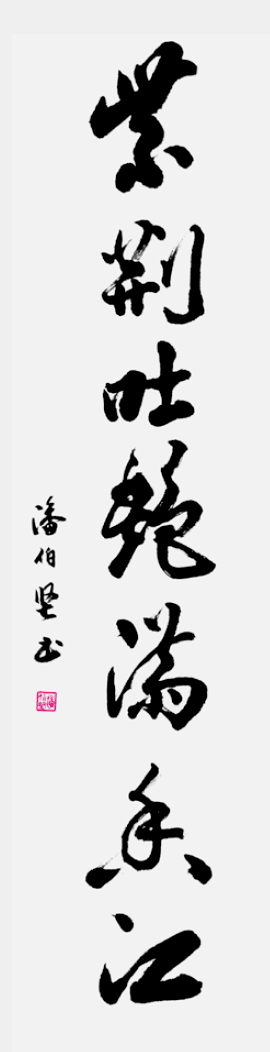 紫荆吐艳满香江
潘伯坚书